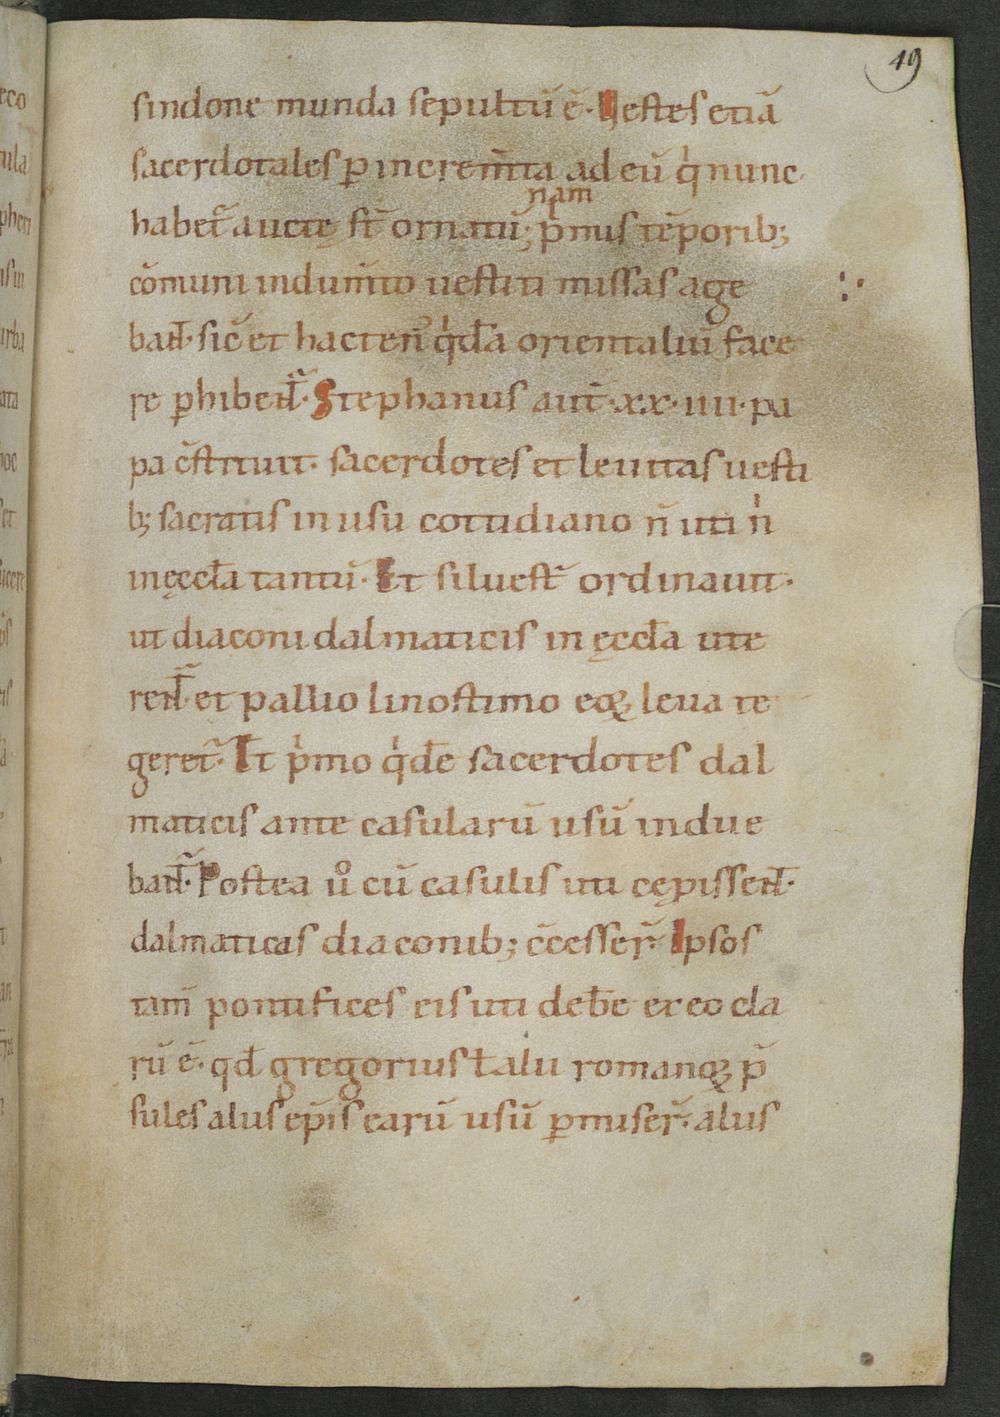 49
sindone munda sepultū ē. Vestes etiā
sacerdotales p̲ increm̄ta ad eū qͥ nunc
nam
habet᷑ auctę st̄ ornatū; pͥmis tēporib;
cōmuni indum̄to uestiti missas age
bant. sic̄ et hacten᷒ qͥdā orientaliū face
re p̲hibent᷑. Stephanus aut̄ .xx.iiii. pa
pa c̄stituit. sacerdotes et leuitas uesti
b; sacratis in usu cottidiano n̄ uti nͥ
in ęccła tantū. Et siluest᷑ ordinauit.
ut diaconi dalmaticis in ęccła ute
rent᷑. et pallio linostimo eoꝝ leua te
geret᷑. Et pͥmo qͥdē sacerdotes dal
maticis ante casularū usū indue
bant᷑. Postea uͦ cū casulis uti cępissent.
dalmaticas diaconib; c̄cesser᷑. Ipsos
tam̄ pontifices eis uti deb̄e ex eo cla
rū ē. qd̄ gregorius ł alii romanoꝝ p̄
sules aliis ep̄is earū usū p̲miser᷑. aliis